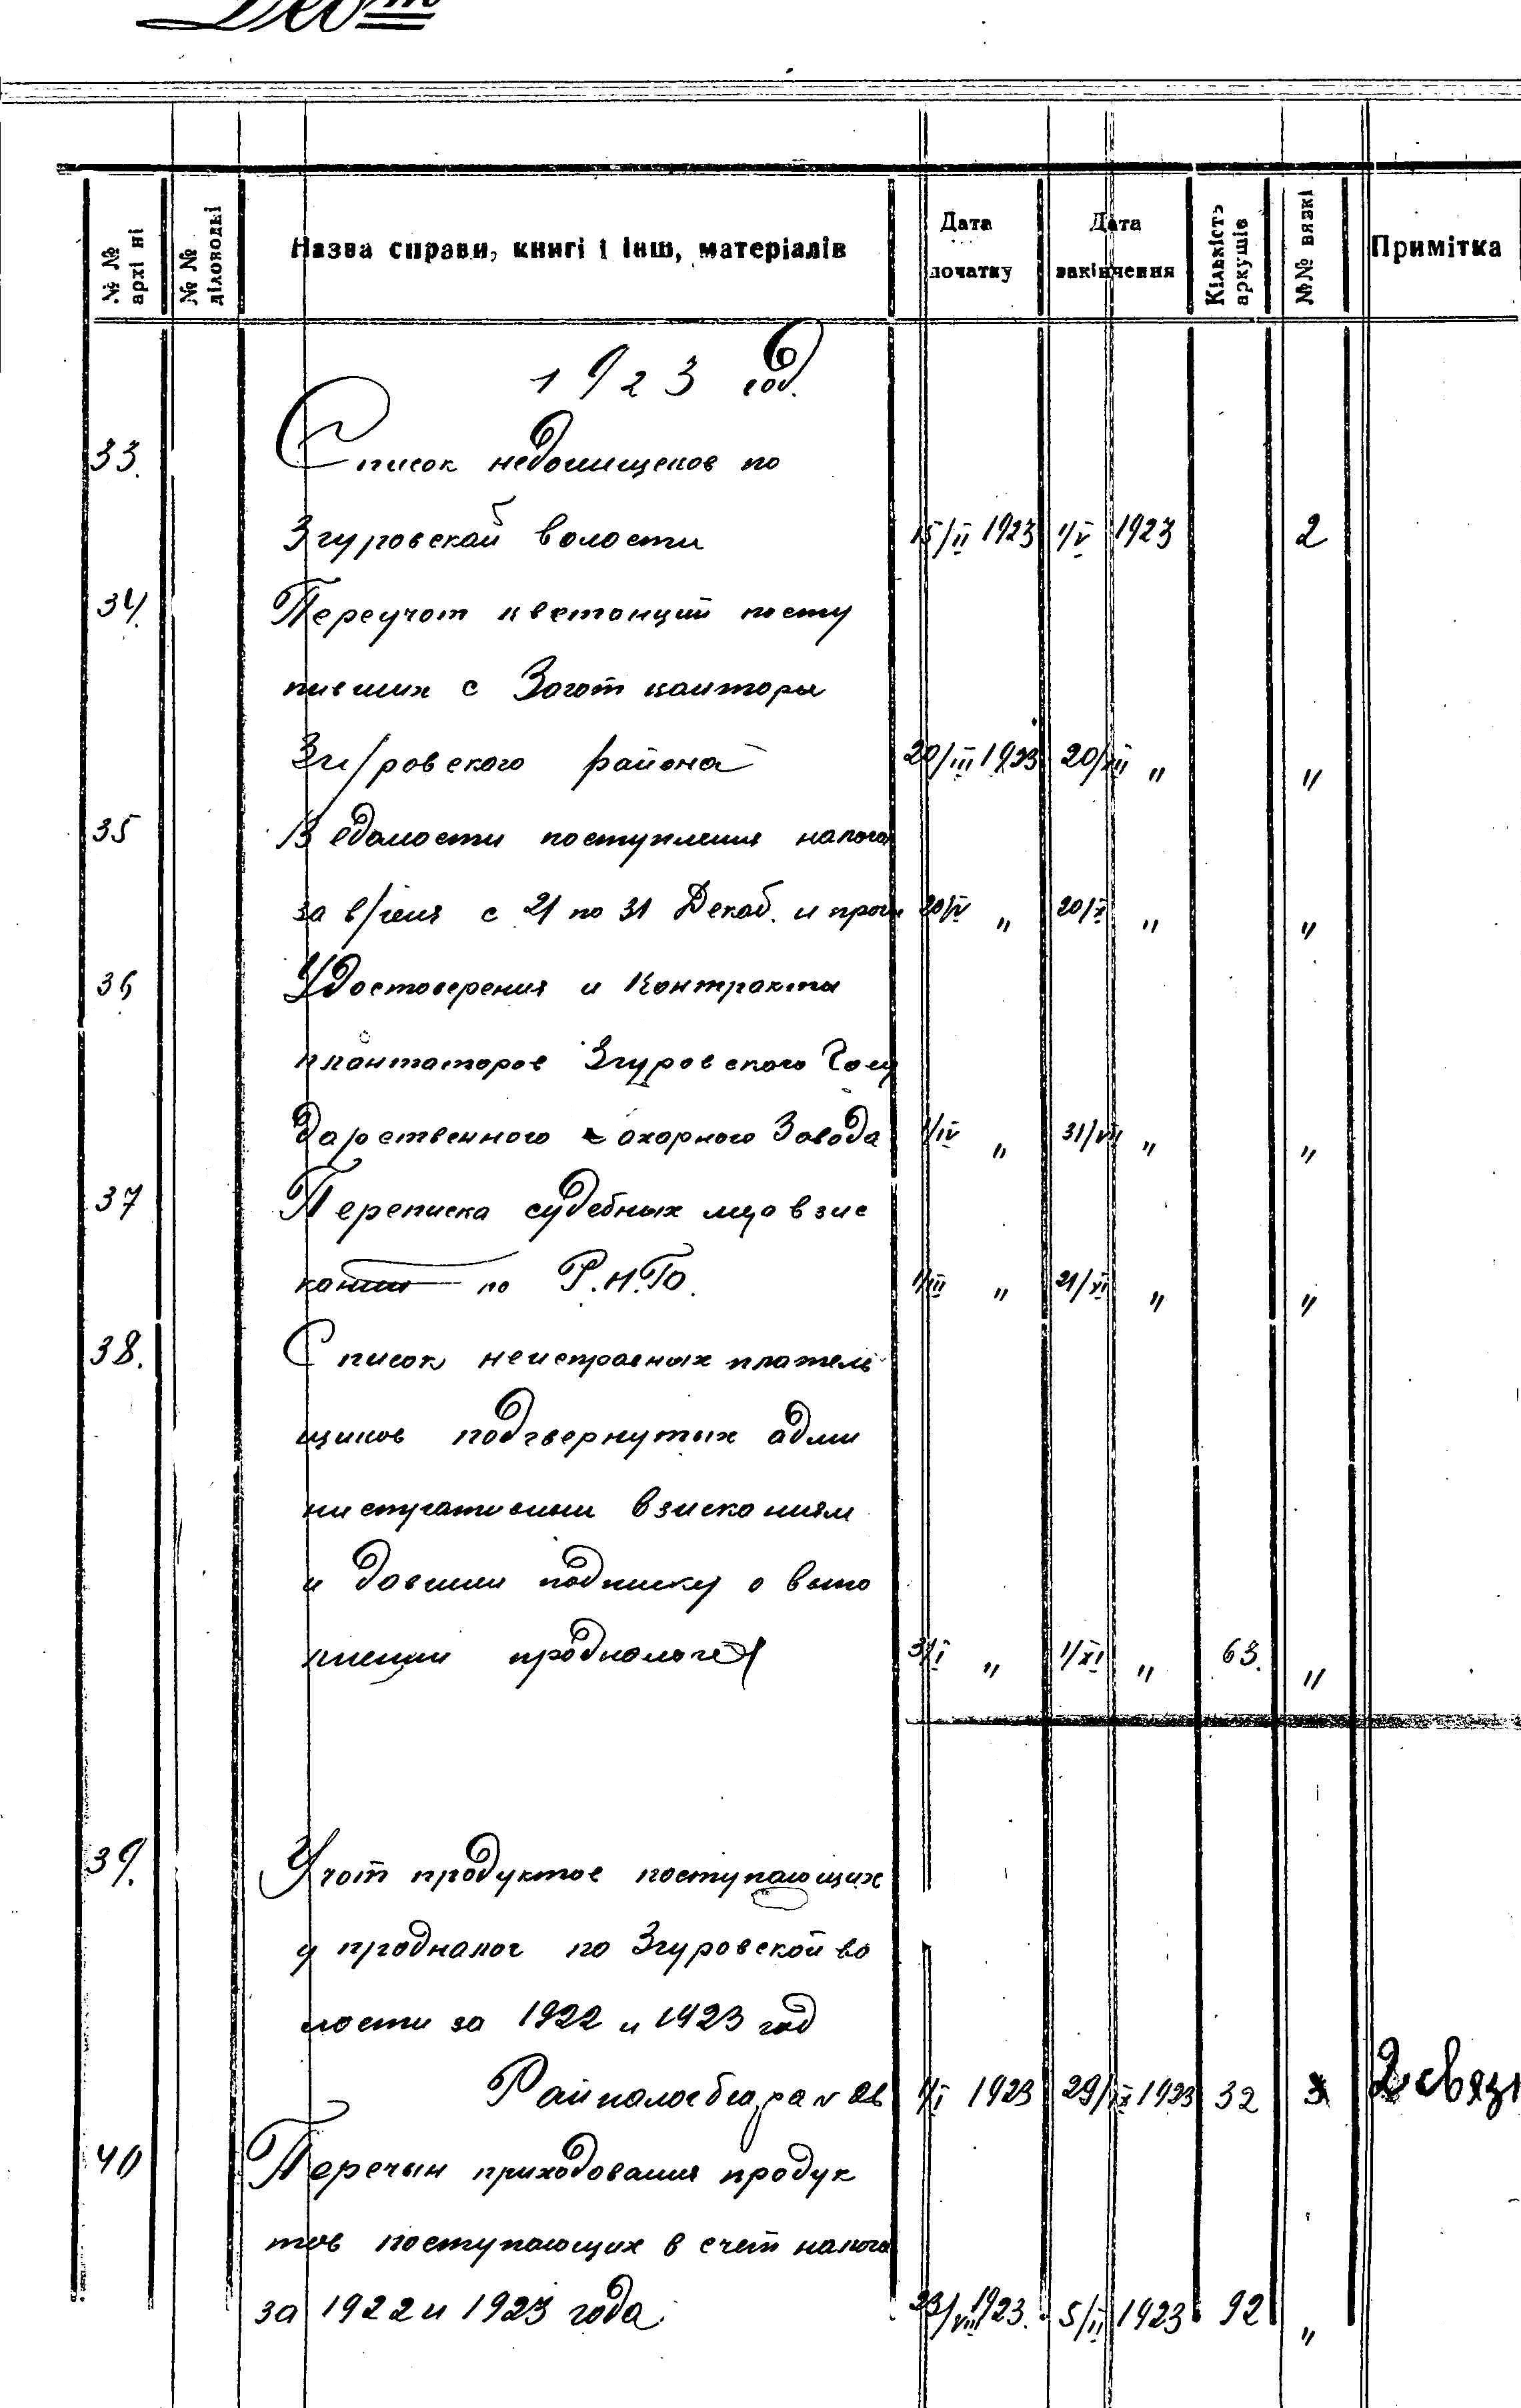 № № архівні
№ № діловодні
Назва справи, книгі і інш, матеріалів
Дата початку
Дата закінчення
Кількість аркушів
№№ вязкі
Примітка
1923 год.
33. Список недоимщеков по
Згуровской волости 15/II 1923 1/V 1923 2
34. Переучот кветонций посту
пивших с Загот канторы
Згуровского района 20/III 1923 20/XII " "
35 Ведомости поступления налога
за время с 21 по 31 Декаб. и проч 20/IV " 20/X " "
36 Удостоверения и Контракты
плантаторов Згуровского Госу
дарственного сахарного Завода 1/IV " 31/VII " "
37 Переписка судебных
по Р.Н.Б. 1/III " 21/XI " "
38. Список неисправных платель
щиков подгвернутых адми
нистративним взисканиям
и давшим подписку о выпо
лнении продналога 3/I " 1/XI " 63. "
39. Учот продуктов поступающих
у продналог по Згуровской во
лости за 1922 и 1923 год
1/I 1923 29/IX 1923 32 3 2 связ
40 Перечын приходования продук
тов поступающих в счет налога
за 1922 и 1923 года. 23/VIII 1923. 5/II 1923 92 "